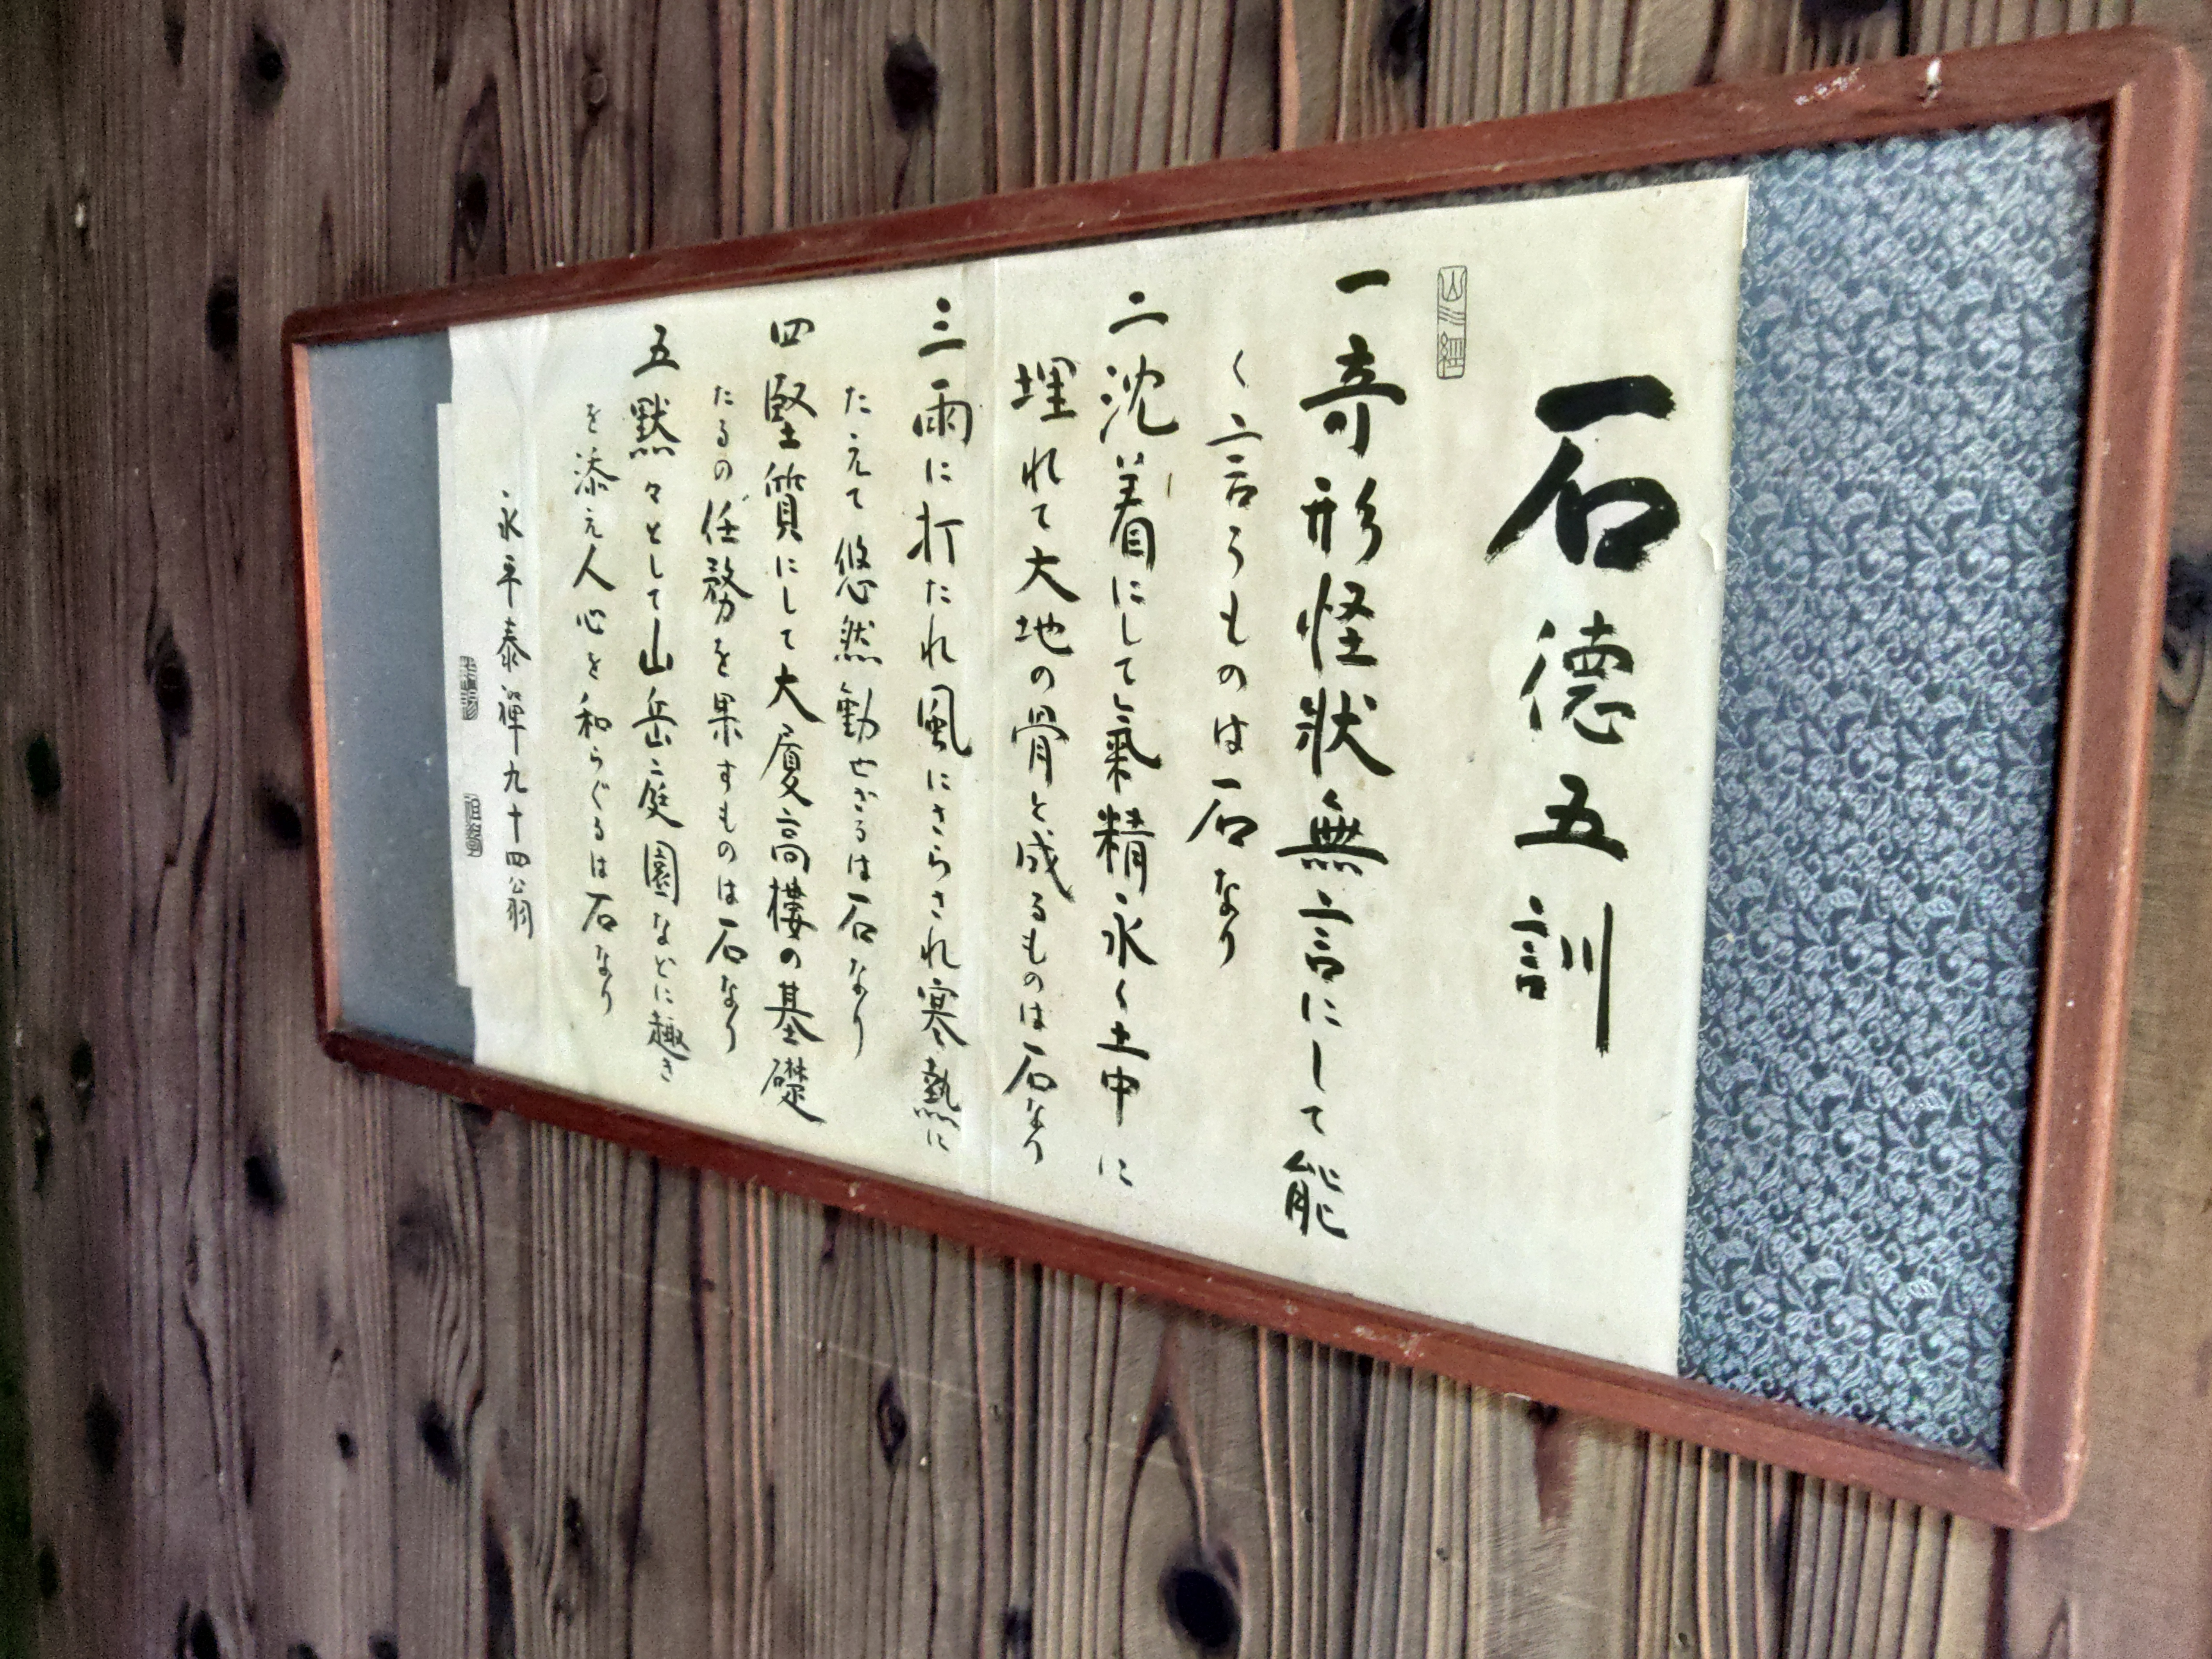 石徳五訓
山水經
一奇形怪状無言にして能
く言うものは石なり
二沈着にして氣精永く土中に
埋れて大地の骨と成るものは石なり
三雨に打たれ風にさらされ寒熱に
たえて悠然動せざるは石なり
四堅質にして大厦高樓の基礎
たるの任務を果すものは石なり
五黙々として山岳庭園などに趣き
を添え人心を和らぐるは石なり
永平泰禅九十四翁